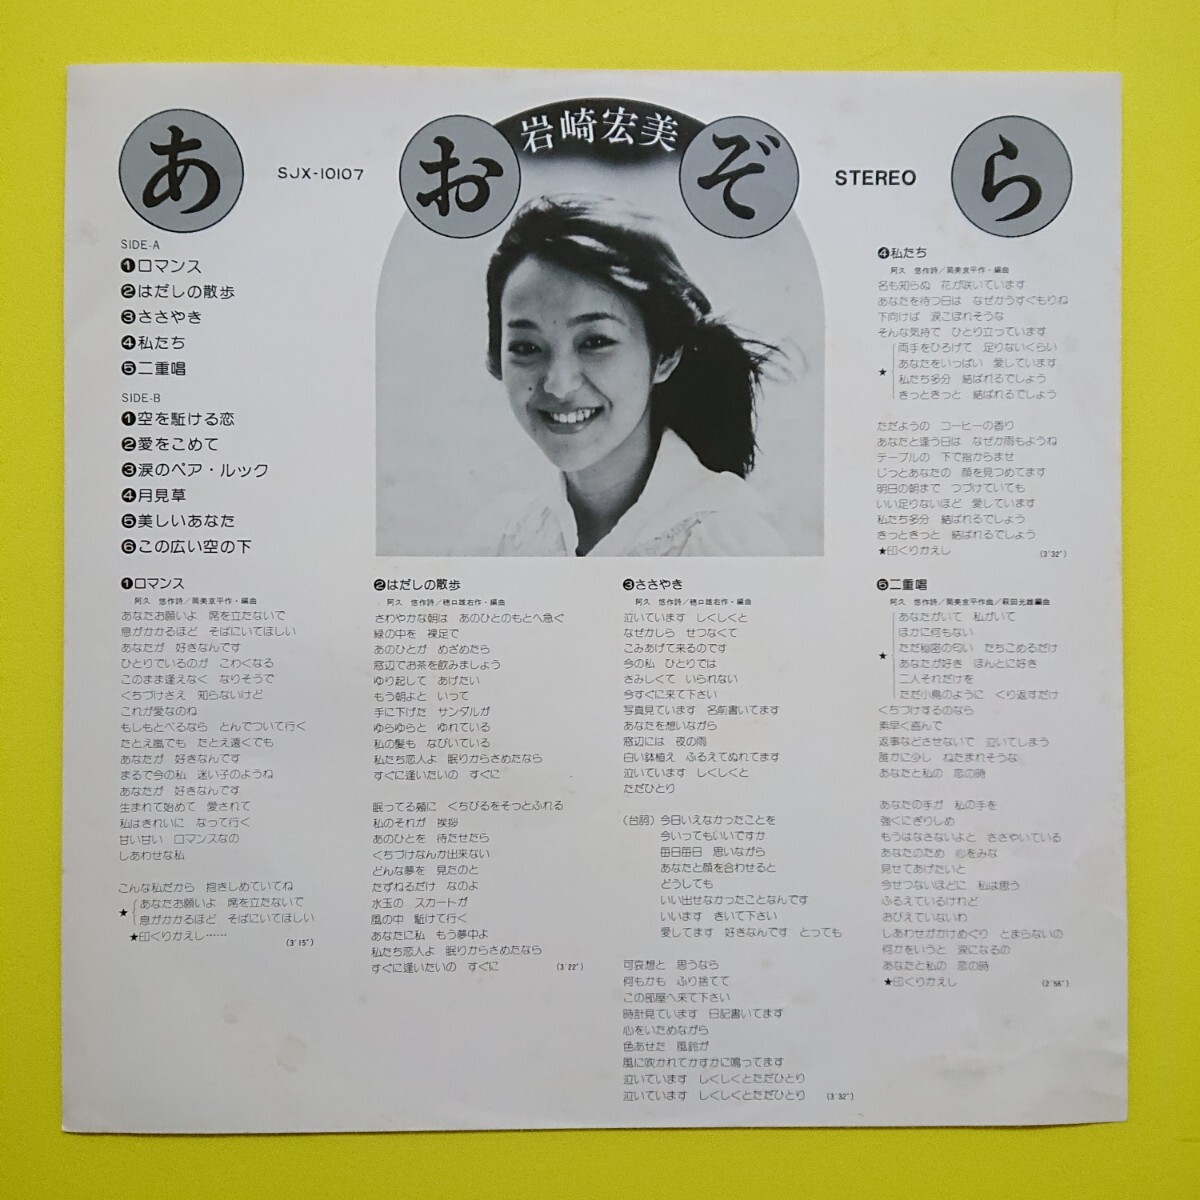 岩崎宏美
あおぞら
SJX-10107
STEREO
SIDE-A
❶ロマンス
❷はだしの散歩
❸ささやき
❹私たち
❺二重唱
SIDE-B
❶空を駈ける恋
❷愛をこめて
❸涙のペア・ルック
❹月見草
❺美しいあなた
❻この広い空の下
❶ロマンス
阿久 悠作詩/筒美京平作・編曲
あなたお願いよ 席を立たないで
息がかかるほど そばにいてほしい
あなたが 好きなんです
ひとりでいるのが こわくなる
このまま逢えなく なりそうで
くちづけさえ 知らないけど
これが愛なのね
もしもとべるなら とんでついて行く
たとえ嵐でも たとえ遠くでも
あなたが 好きなんです
まるで今の私 迷い子のようね
あなたが 好きなんです
生まれて始めて 愛されて
私はきれいに なって行く
甘い甘い ロマンスなの
しあわせな私
こんな私だから 抱きしめていてね
★ あなたお願いよ 席を立たないで
息がかかるほど そばにいてほしい
★印くりかえし……
(3'15")
❷はだしの散歩
阿久 悠作詩/穂口雄右作・編曲
さわやかな朝は あのひとのもとへ急ぐ
緑の中を 裸足で
あのひとが めざめたら
窓辺でお茶を飲みましょう
ゆり起して あげたい
もう朝よと いって
手に下げた サンダルが
ゆらゆらと ゆれている
私の髪も なびいている
私たち恋人よ 眠りからさめたなら
すぐに逢いたいの すぐに
眠ってる頬に くちびるをそっとふれる
私のそれが 挨拶
あのひとを 待たせたら
くちづけなんか出来ない
どんな夢を 見たのと
たずねるだけ なのよ
水玉の スカートが
風の中 駈けて行く
あなたに私 もう夢中よ
私たち恋人よ 眠りからさめたなら
すぐに逢いたいの すぐに
(3'22")
❸ささやき
阿久 悠作詩/穂口雄右作・編曲
泣いています しくしくと
なぜかしら せつなくて
こみあげて来るのです
今の私 ひとりでは
さみしくて いられない
今すぐに来て下さい
写真見ています 名前書いてます
あなたを想いながら
窓辺には 夜の雨
白い鉢植え ふるえてぬれてます
泣いています しくしくと
ただひとり
(台詞) 今日いえなかったことを
今いってもいいですか
毎日毎日 思いながら
あなたと顔を合わせると
どうしても
いい出せなかったことなんです
いいます きいて下さい
愛してます 好きなんです とっても
可哀想と 思うなら
何もかも ふり捨てて
この部屋へ来て下さい
時計見ています 日記書いてます
心をいためながら
色あせた 風鈴が
風に吹かれてかすかに鳴ってます
泣いています しくしくとただひとり
泣いています しくしくとただひとり
(3'32")
❹私たち
阿久 悠作詩/筒美京平作・編曲
名も知らぬ 花が咲いています
あなたを待つ日は なぜかうすぐもりね
下向けば 涙こぼれそうな
そんな気持で ひとり立っています
★ 両手をひろげて 足りないくらい
あなたをいっぱい 愛しています
私たち多分 結ばれるでしょう
きっときっと 結ばれるでしょう
ただようの コーヒーの香り
あなたと逢う日は なぜか雨もようね
テーブルの 下で指からませ
じっとあなたの 顔を見つめてます
明日の朝まで つづけていても
いい足りないほど 愛しています
私たち多分 結ばれるでしょう
きっときっと 結ばれるでしょう
★印くりかえし
(3'32")
❺二重唱
阿久 悠作詩/筒美京平作曲/萩田光雄編曲
★ あなたがいて 私がいて
ほかに何もない
ただ秘密の匂い たちこめるだけ
あなたが好き ほんとに好き
二人それだけを
ただ小鳥のように くり返すだけ
くちづけするのなら
素早く盗んで
返事などさせないで 泣いてしまう
誰かに少し ねたまれそうな
あなたと私の 恋の時
あなたの手が 私の手を
強くにぎりしめ
もうはなさないよと ささやいている
あなたのため 心をみな
見せてあげたいと
今せつないほどに 私は思う
ふるえているけれど
おびえていないわ
しあわせがかけめぐり とまらないの
何かをいうと 涙になるの
あなたと私の 恋の時
★印くりかえし
(2'56")